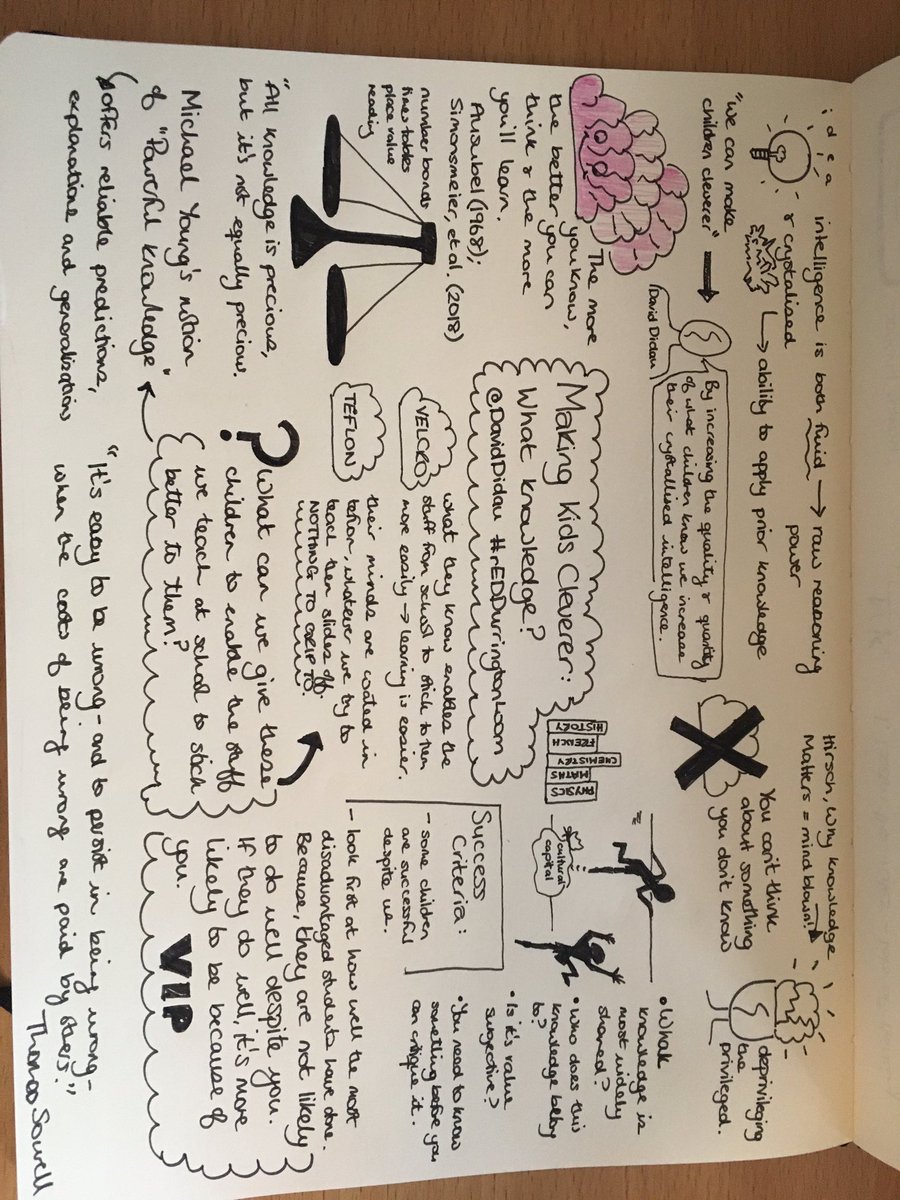 idea
intelligence is both fluid → raw reasoning
power
& crystalised
↳ ability to apply prior knowledge
"we can make
children cleverer" →
David Didau
By increasing the quality & quantity
of what children know we increase
their crystallised intelligence.
Hirsch, Why Knowledge
Matters = mind blown!
You can't think
about something
you don't know
deprivileging
the
privileged.
The more
you know,
the better you can
think & the more
you'll learn.
Ausubel (1968);
Simonsmeier, et al. (2018)
number bonds
times tables
place value
reading
"All knowledge is precious,
but it's not equally precious.
Michael Young's notion
of "Powerful knowledge"
offers reliable predictions,
explanations and generalisations
Making Kids Cleverer:
What knowledge?
@DavidDidau #rEDDurringtonLoom
HISTORY
FRENCH
CHEMISTRY
MATHS
PHYSICS
VELCRO
what they know enables the
stuff from school to stick to them
more easily → learning is easier.
TEFLON
their minds are coated in
teflon, whatever we try to
teach then slides off.
NOTHING TO GRIP TO.
? What can we give these
children to enable the stuff
we teach at school to stick
better to them?
cultural
capital
• What
knowledge is
most widely
shared?
• Who does this
knowledge belong
to?
• Is it's value
subjective?
• You need to know
something before you
can critique it.
Success
Criteria:
- some children
are successful
despite us.
- look first at how well the most
disadvantaged students have done.
Because, they are not likely
to do well despite you.
If they do well, it's more
likely to be because of
you.
VIP
"It's easy to be wrong - and to persist in being wrong -
when the costs of being wrong are paid by others."
Thomas Sowell